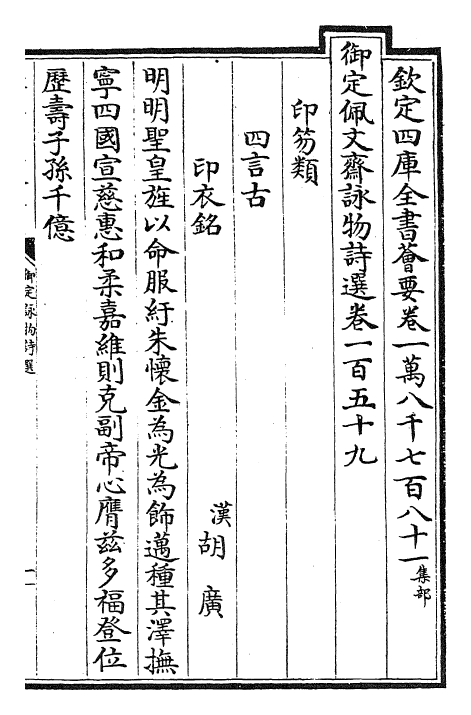 欽定四庫全書薈要卷一萬八千七百八十一集部
御定佩文齋詠物詩選卷一百五十九
印笏類
四言古
印衣銘
漢胡廣
明明聖皇旌以命服紆朱懷金為光為飾邁種其澤撫
寧四國宣慈惠和柔嘉維則克副帝心膺茲多福登位
歷壽子孫千億
御定詠物詩選
一